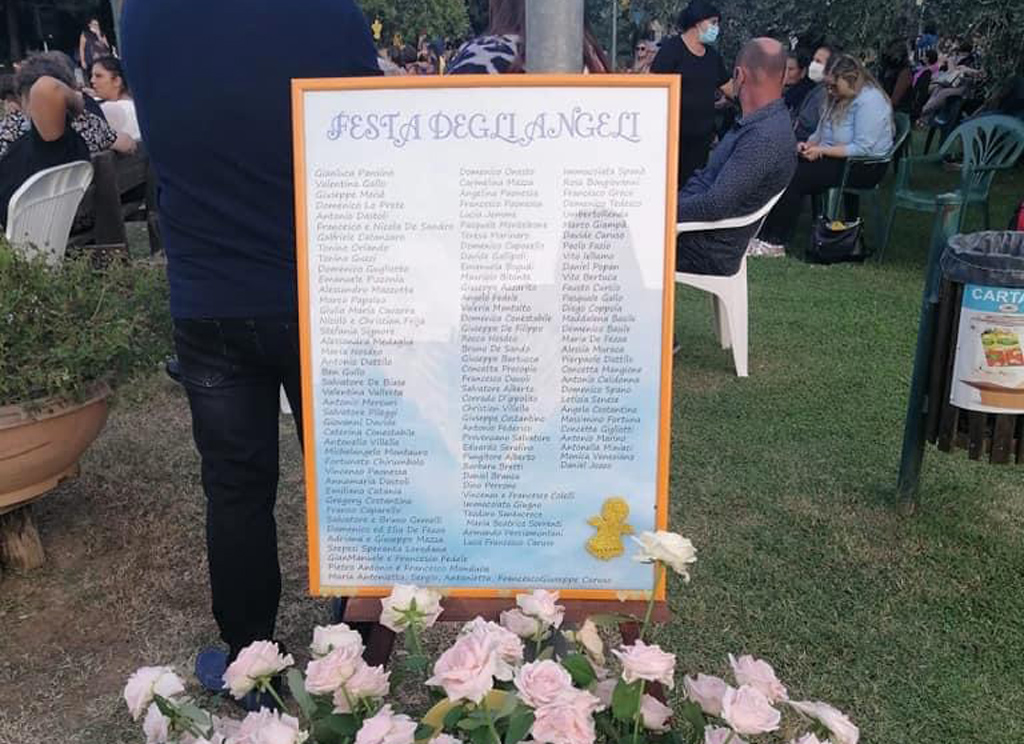 FESTA DEGLI ANGELI
Gianluca Pansino
Valentina Gallo
Giuseppe Morià
Domenico Lo Prete
Antonio Dastoli
Francesco e Nicola De Sandro
Gabriele Catanzaro
Tonino Orlando
Tonino Guzzi
Domenico Guglietta
Emanuele Pizzonia
Alessandro Mazzotta
Marco Papaleo
Giulia Maria
Nicolò e Christian Frija
Stefania Signore
Alessandra Medaglia
Maria Nosdeo
Antonio Dattilo
Ben Gullo
Salvatore De Biase
Valentina Vallotta
Antonio Mercuri
Salvatore Pileggi
Giovanni Davide
Caterina Conestabile
Antonello Villella
Michelangelo Montauro
Fortunato Chirumbolo
Vincenzo Paonessa
Annamaria Dastoli
Emiliano Catania
Gregory Costantino
Franco Caparello
Salvatore e Bruno Gemelli
Domenico ed Elia De Fazio
Adriana e Giuseppe Mazza
Szepesi Speranta Loredana
GianManuele e Francesco Fedele
Pietro Antonio e Francesco Manduca
Maria Antonietta, Sergio, Antonietta, FrancescoGiuseppe Caruso
Domenico Onesto
Carmelina Mazza
Angelina Paonessa
Francesco Paonessa
Lucia Jemma
Pasquale
Teresa Marinaro
Domenico Caporello
Davide Gallipoli
Emanuela Bogudi
Maurizio Bitonte
Giuseppe Azzarito
Angelo Fedele
Valeria Montalto
Domenico Conestabile
Giuseppe De Filippo
Rocco Nosdeo
Bruno De Sando
Giuseppe Bertucca
Concetta Procopio
Francesco Dascli
Salvatore Alberto
Corrado D'ippolito
Christian Villella
Giuseppe Costantino
Antonio Federico
Provenzano Salvatore
Edoardo Serafino
Pungitore Alberto
Barbara Bretti
Daniel Branca
Dino Perrone
Vincenzo e Francesco Colelli
Immacolata Giugno
Teodoro Santacroce
Maria Beatrice Sorrenti
Armando Perciamontani
Luca Francesco Caruso
Immacolata Spanò
Rosa Bongiovanni
Francesco Greco
Domenico Tedesco
Umberto
Marco Giampà
Davide Caruso
Paolo Fazio
Vito Iellamo
Daniel Popan
Vito Bertuca
Fausto Curcio
Pasquale Gallo
Diego Coppola
Maddalena Basile
Domenico Basile
Maria De Fazio
Alessia Muraca
Pierpaolo Dattilo
Concetta Mangione
Antonio Caldonna
Domenico Spano
Letizia Senese
Angela Costantino
Massimino Fortuna
Concetta Gigliotti
Antonio Marino
Antonella Maviaci
Monica Veneziano
Daniel Jozzo
CARTA